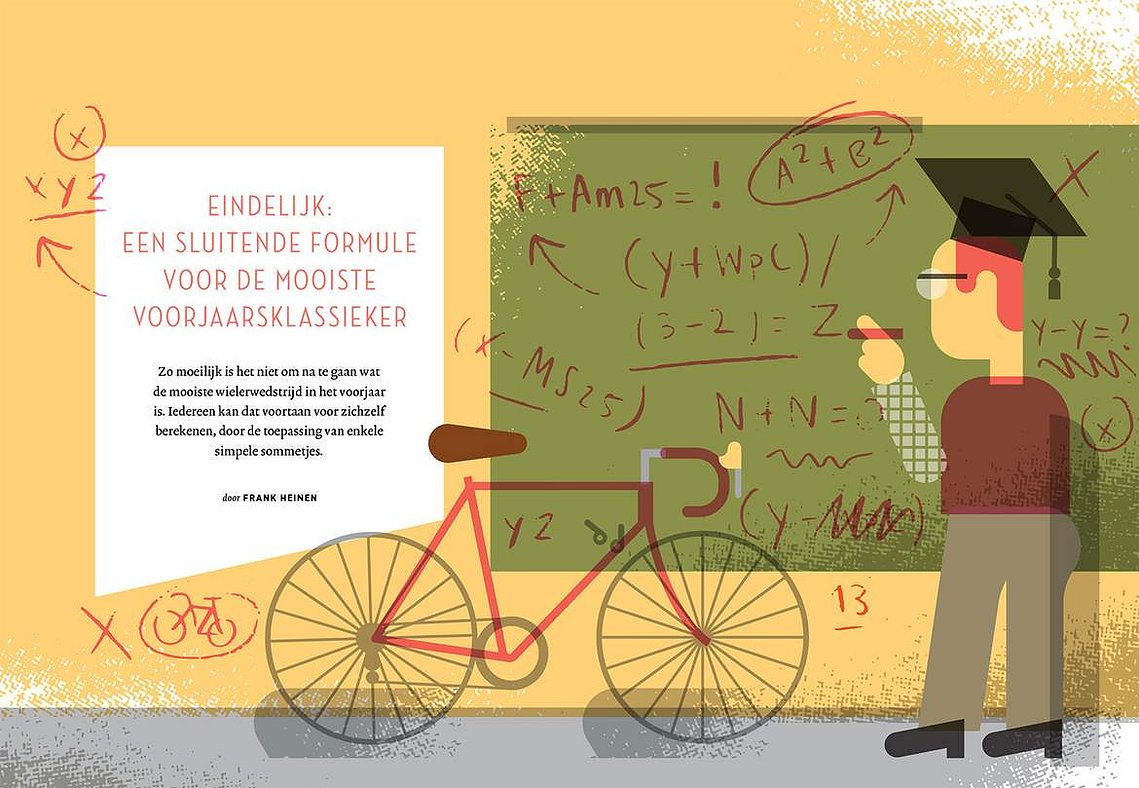 EINDELIJK:
EEN SLUITENDE FORMULE
VOOR DE MOOISTE
VOORJAARSKLASSIEKER
Zo moeilijk is het niet om na te gaan wat
de mooiste wielerwedstrijd in het voorjaar
is. Iedereen kan dat voortaan voor zichzelf
berekenen, door de toepassing van enkele
simpele sommetjes.
door FRANK HEINEN
x
x y z
F + Am25 = !
A² + B²
X
(y + WpC) /
(3-2) = Z
y - y = ?
(x - MS25)
N + N =
x
y 2
(y -
X
13